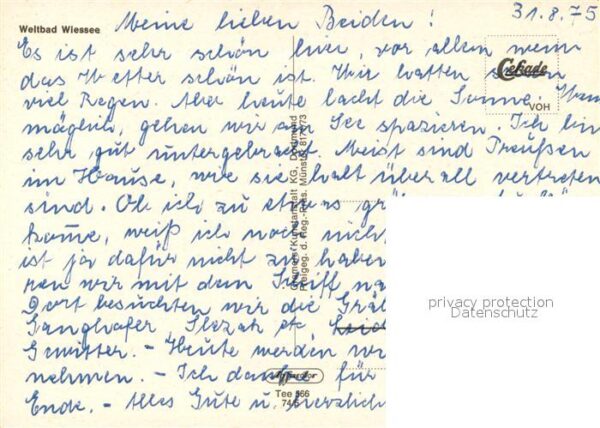 Weltbad Wiessee
Meine lieben Beiden! 31.8.75
Es ist sehr schön hier, vor allem wenn
das Wetter schön ist. Wir hatten schon
viel Regen. Aber heute lacht die Sonne. Wenn
möglich, gehen wir am See spazieren. Ich bin
sehr gut untergebracht. Meist sind Preußen
im Hause, wie sie halt überall vertreten
sind. Ob ich zu etwas
komme, weiß ich noch nicht
ist ja dafür nicht zu haben
ren wir mit dem Schiff na
Dort besuchten wir die Gräb
Ganghofer, Slezak etc.
Gewitter. - Heute werden wi
nehmen. - Ich danke für
Ende. - Alles Gute u. herzlich
Cekade
VOH
Cramers Kunstanstalt KG, Dortmund
Freigeg. d. Reg.-Präs. Münster
Tee 566
privacy protection
Datenschutz